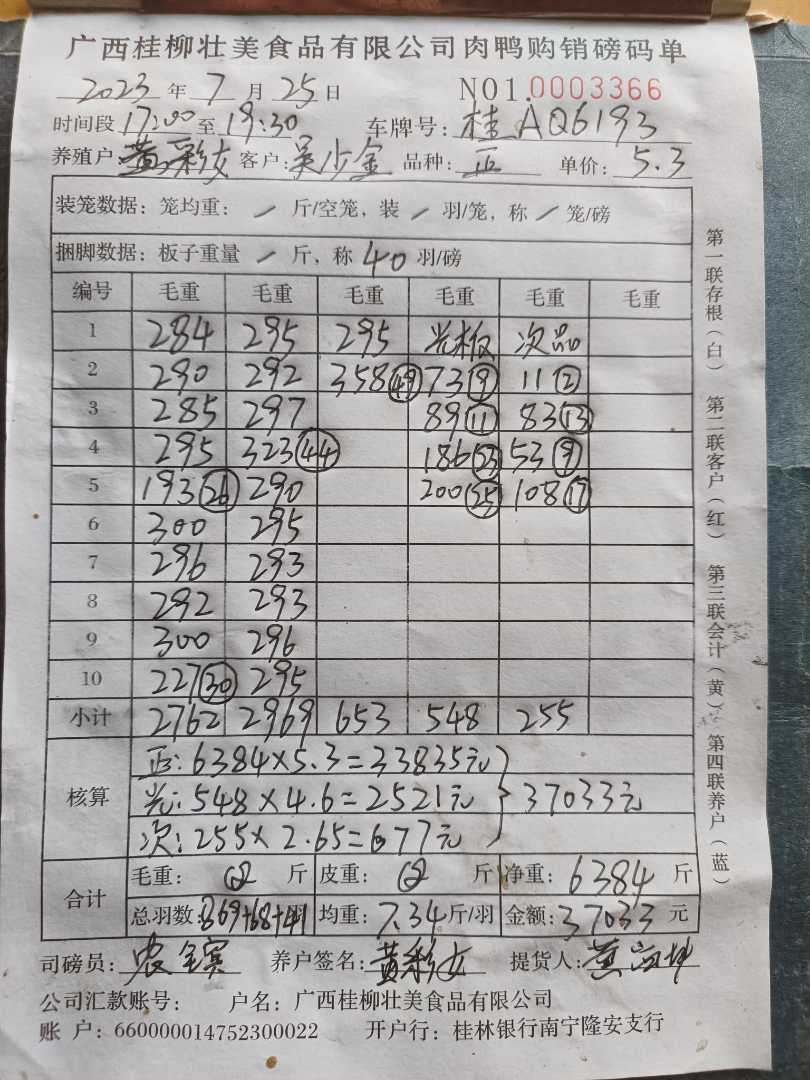 广西桂柳壮美食品有限公司肉鸭购销磅码单
2023 年 7 月 25 日 NO1.0003366
时间段 17:00 至 19:30 车牌号: 桂AQ6193
养殖户: 黄彩女 客户: 吴少金 品种: 正 单价: 5.3
装笼数据: 笼均重: / 斤/空笼, 装 / 羽/笼, 称 / 笼/磅
捆脚数据: 板子重量 / 斤, 称 40 羽/磅
编号 毛重 毛重 毛重 毛重 毛重 毛重
1 284 295 295 光板 次品
2 290 292 358 49 73 9 11 2
3 285 297 89 11 83 13
4 295 323 44 186 23 53 9
5 193 26 290 200 25 108 17
6 300 295
7 296 293
8 292 293
9 300 296
10 227 30 295
小计 2762 2969 653 548 255
核算
正: 6384×5.3=33835元
光: 548×4.6=2521元 } 37033元
次: 255×2.65=677元
合计
毛重: 斤 皮重: 斤 净重: 6384 斤
总羽数: 869+68+41 均重: 7.34 斤/羽 金额: 37033 元
司磅员: 养户签名: 黄彩女 提货人: 黄
公司汇款账号: 户名: 广西桂柳壮美食品有限公司
账 户: 660000014752300022 开户行: 桂林银行南宁隆安支行
第一联存根(白) 第二联客户(红) 第三联会计(黄) 第四联养户(蓝)